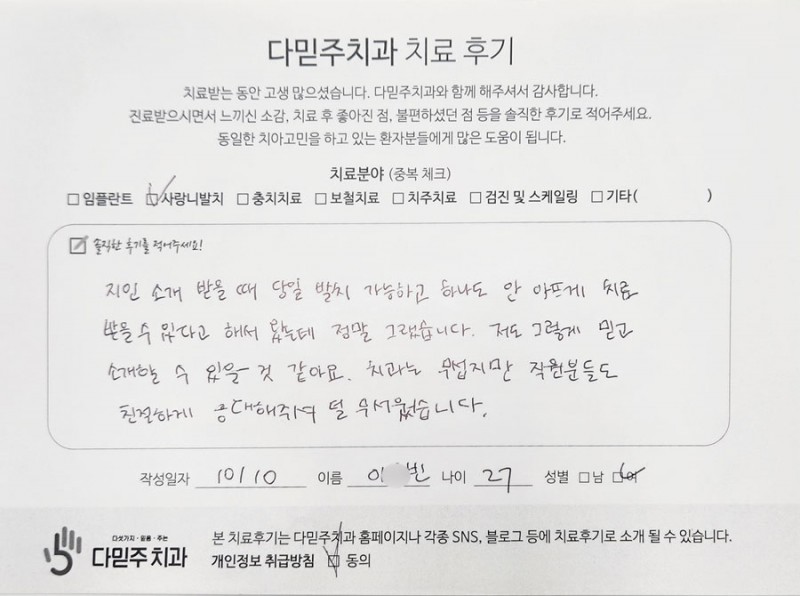 다믿주치과 치료 후기
치료받는 동안 고생 많으셨습니다. 다믿주치과와 함께 해주셔서 감사합니다.
진료받으시면서 느끼신 소감, 치료 후 좋아진 점, 불편하셨던 점 등을 솔직한 후기로 적어주세요.
동일한 치아고민을 하고 있는 환자분들에게 많은 도움이 됩니다.
치료분야 (중복 체크)
임플란트 사랑니발치 충치치료 보철치료 치주치료 검진 및 스케일링 기타( )
솔직한 후기를 적어주세요!
지인 소개 받을 때 당일 발치 가능하고 하나도 안 아프게 치료
받을 수 있다고 해서 왔는데 정말 그랬습니다. 저도 그렇게 믿고
소개할 수 있을 것 같아요. 치과는 무섭지만 직원분들도
친절하게 응대해주셔 덜 무서웠습니다.
작성일자 10/10 이름 이 빈 나이 27 성별 남 여
다섯가지·믿음·주는
다믿주치과
본 치료후기는 다믿주치과 홈페이지나 각종 SNS, 블로그 등에 치료후기로 소개 될 수 있습니다.
개인정보 취급방침 동의